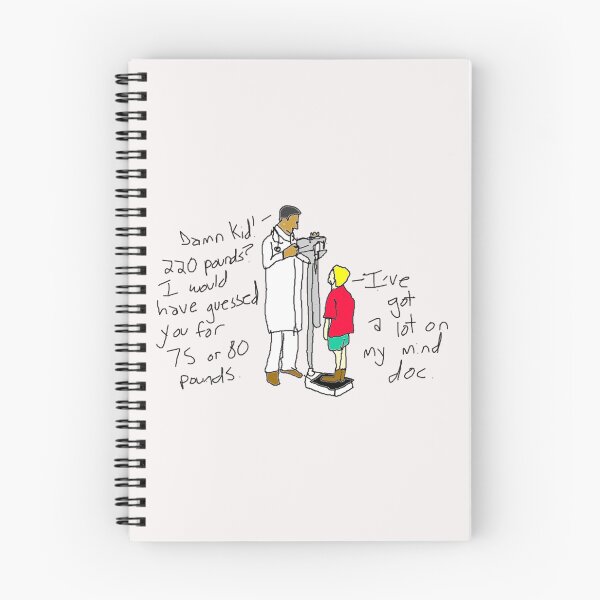 Damn Kid!
220 pounds?
I would
have guessed
you for
75 or 80
pounds.
I've
got
a lot on
my mind
doc.